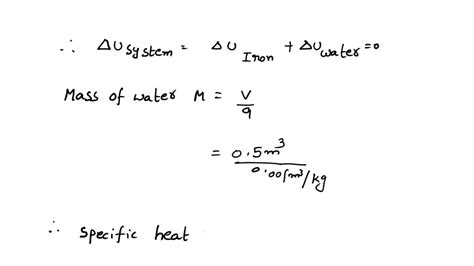 ∴ ΔU system = ΔU Iron + ΔU water = 0
Mass of water M = V/9
= 0.5m³/0.001m³/kg
∴ Specific heat